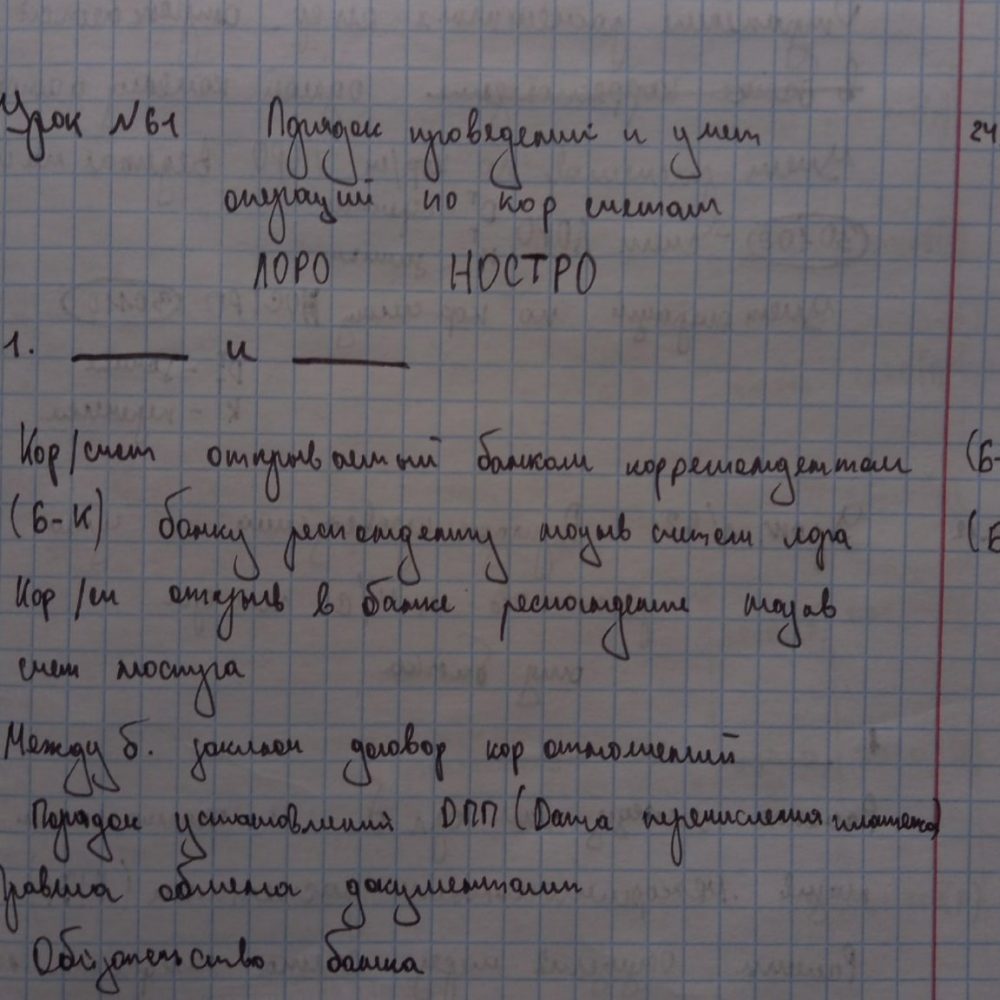 Урок №61 Пдрядок проведений и учет 24
операций по кор счетам
ЛОРО НОСТРО
1. и
Кор/счет открываемый банком корреспондентом (Б-
(Б-К) банку респонденту назыв счетом лора (Б
Кор/сч открыв в банке респонденте назав
счет ностра
Между б. заключ договор кор отношений
Порядок установлений DПП (Dата перечисления платежа)
Правила обмена документами
Обязательство банка